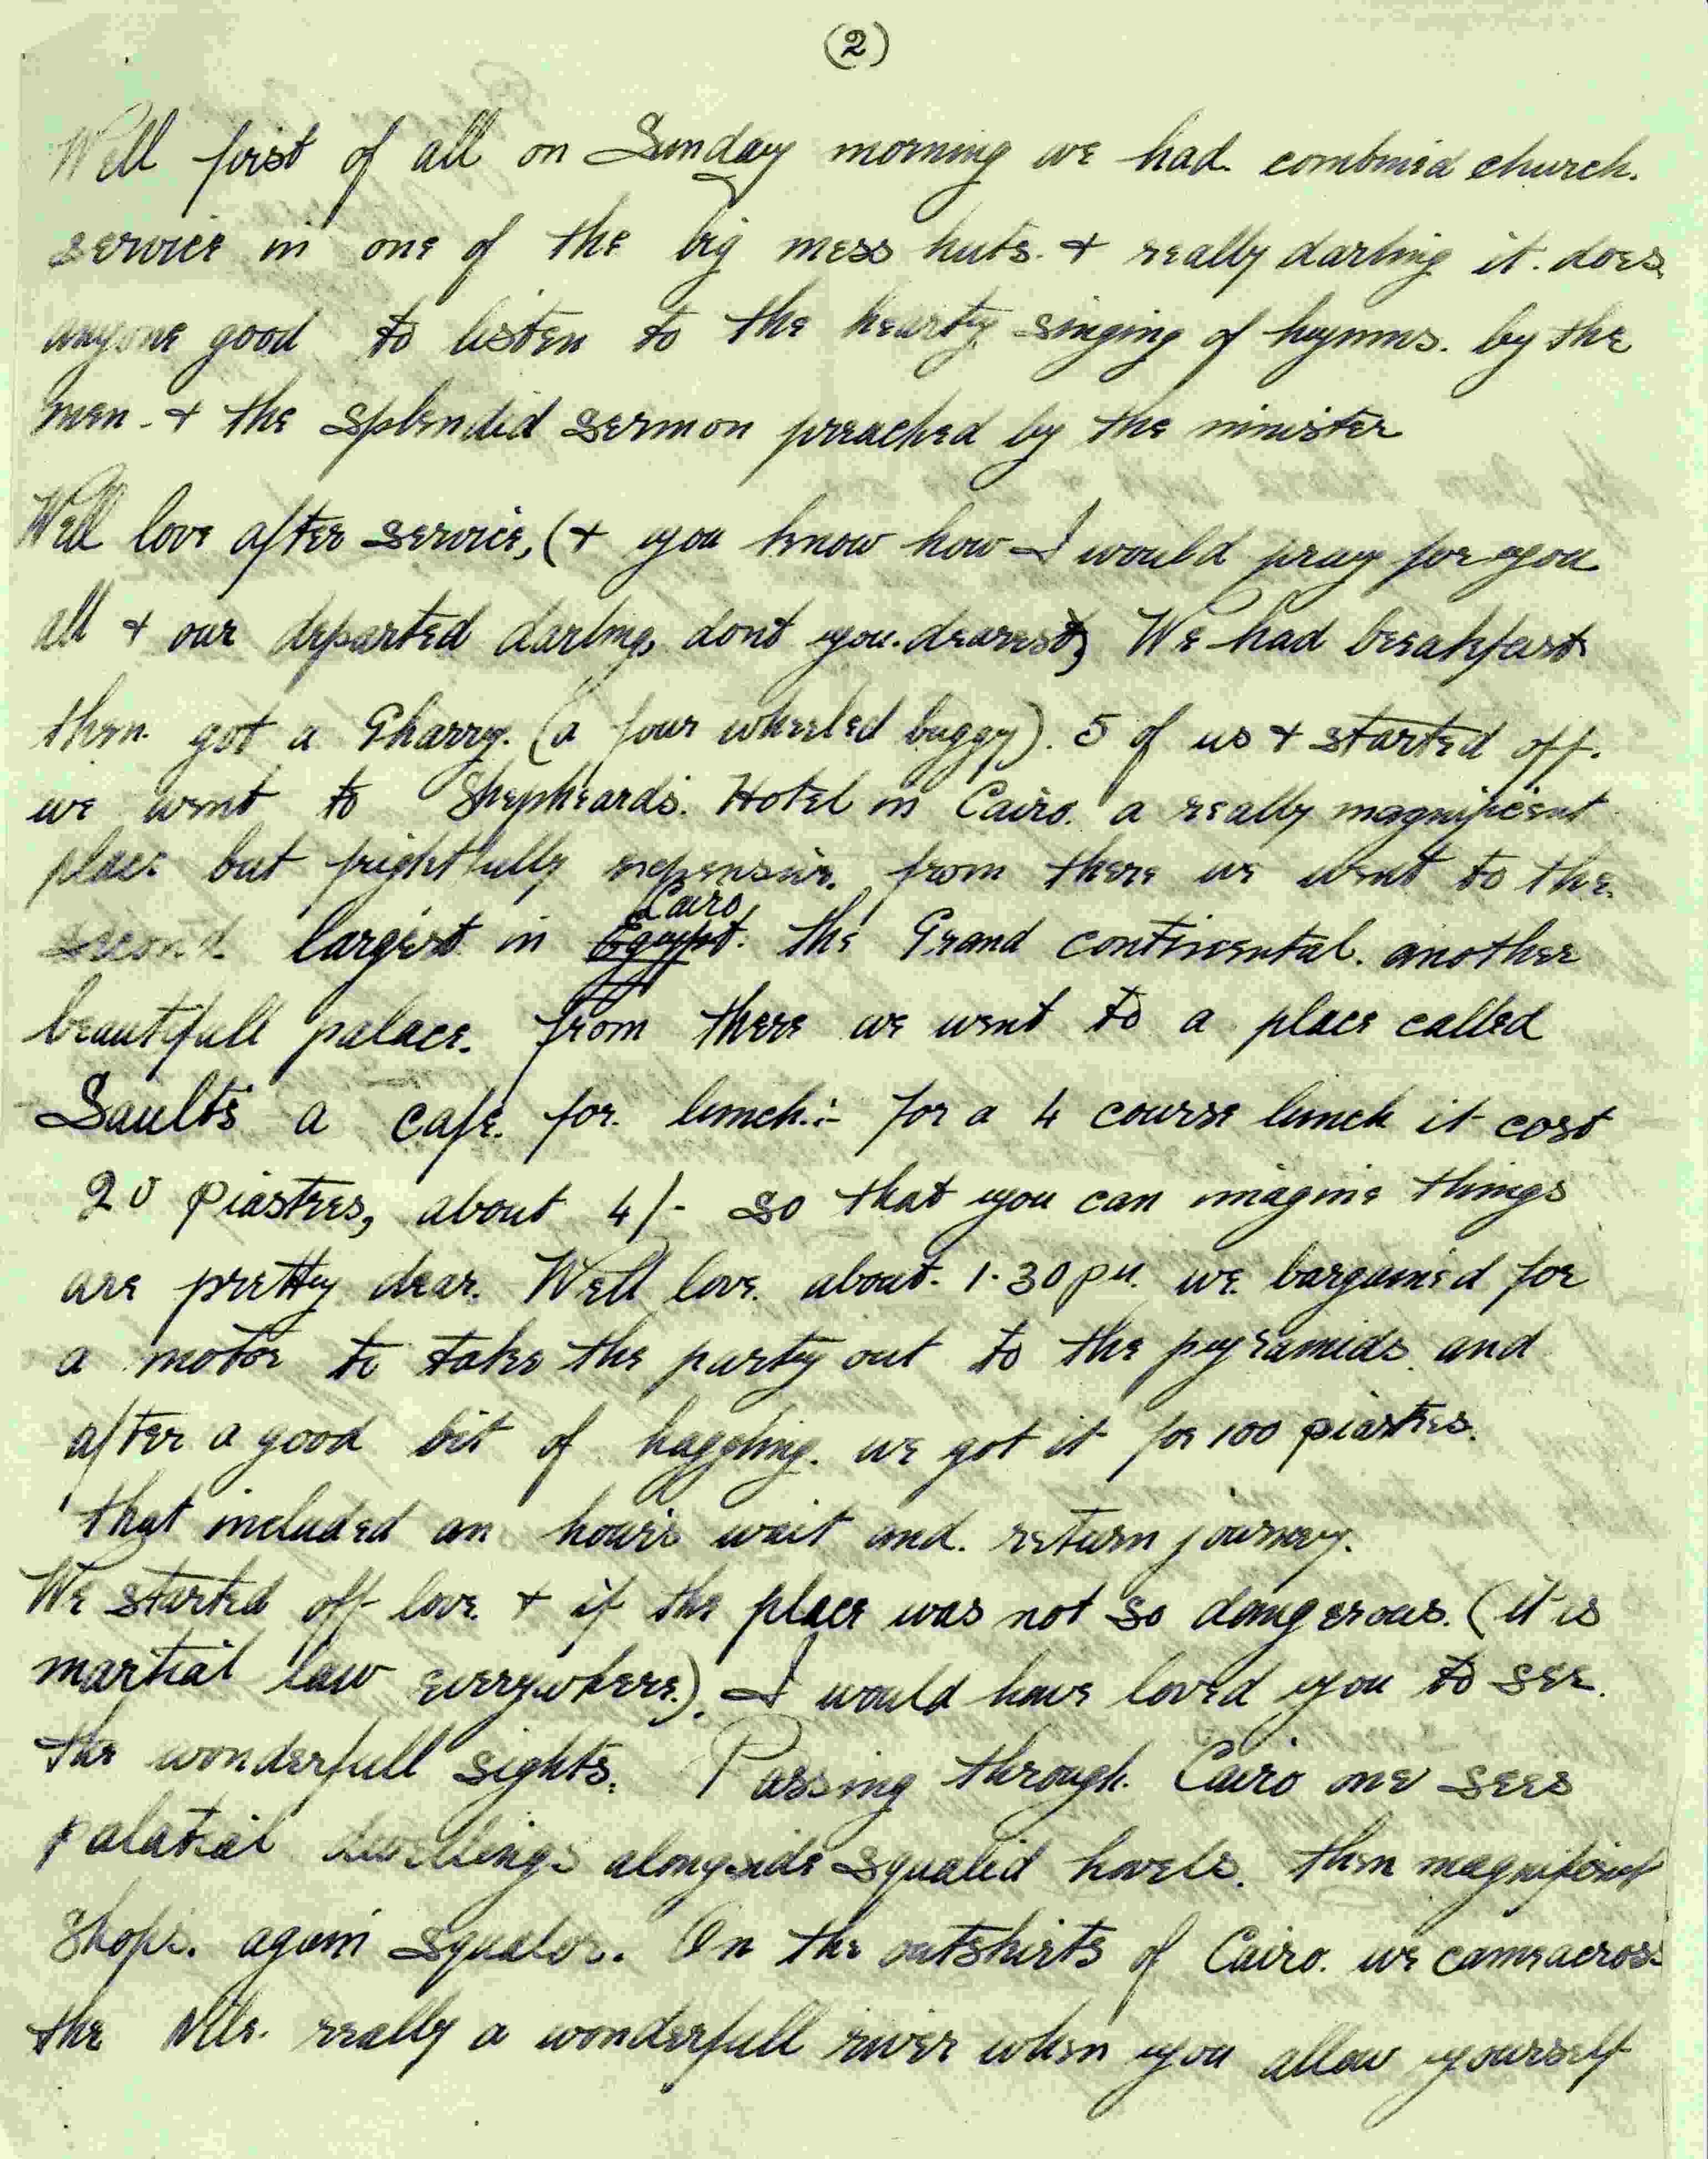 (2)
Well first of all on Sunday morning we had. combined church.
service in one of the big mess huts. + really darling it. does.
anyone good to listen to the hearty singing of hymns. by the
men - + the splendid sermon preached by the minister
Well love after service, (+ you know how I would pray for you
all + our departed darling, dont you. dearest) We had breakfast
then. got a Gharry. (a four wheeled buggy). 5 of us + started off.
we went to Shepheards. Hotel in Cairo. a really magnificent
place but frightfully expensive. from there we went to the.
second largest in Egypt. Cairo, the Grand continental. another
beautifull palace. from there we went to a place called
Saults a cafe. for. lunch.:- for a 4 course lunch it cost
20 piastres, about 4/- so that you can imagine things
are pretty dear. Well love. about. 1.30 pm. we. bargained for
a motor to take the party out to the pyramids. and
after a good bit of haggling. we got it for 100 piastres.
that included an hour's wait and. return journey.
We started off love + if the place was not so dangerous. (it is
martial law everywhere.). I would have loved you to see.
the wonderfull sights. Passing through. Cairo one sees
palatial dwellings alongside squalid hovels. then magnificent
shops. again squalor. On the outskirts of Cairo. we came across
the Nile. really a wonderfull river when you allow yourself